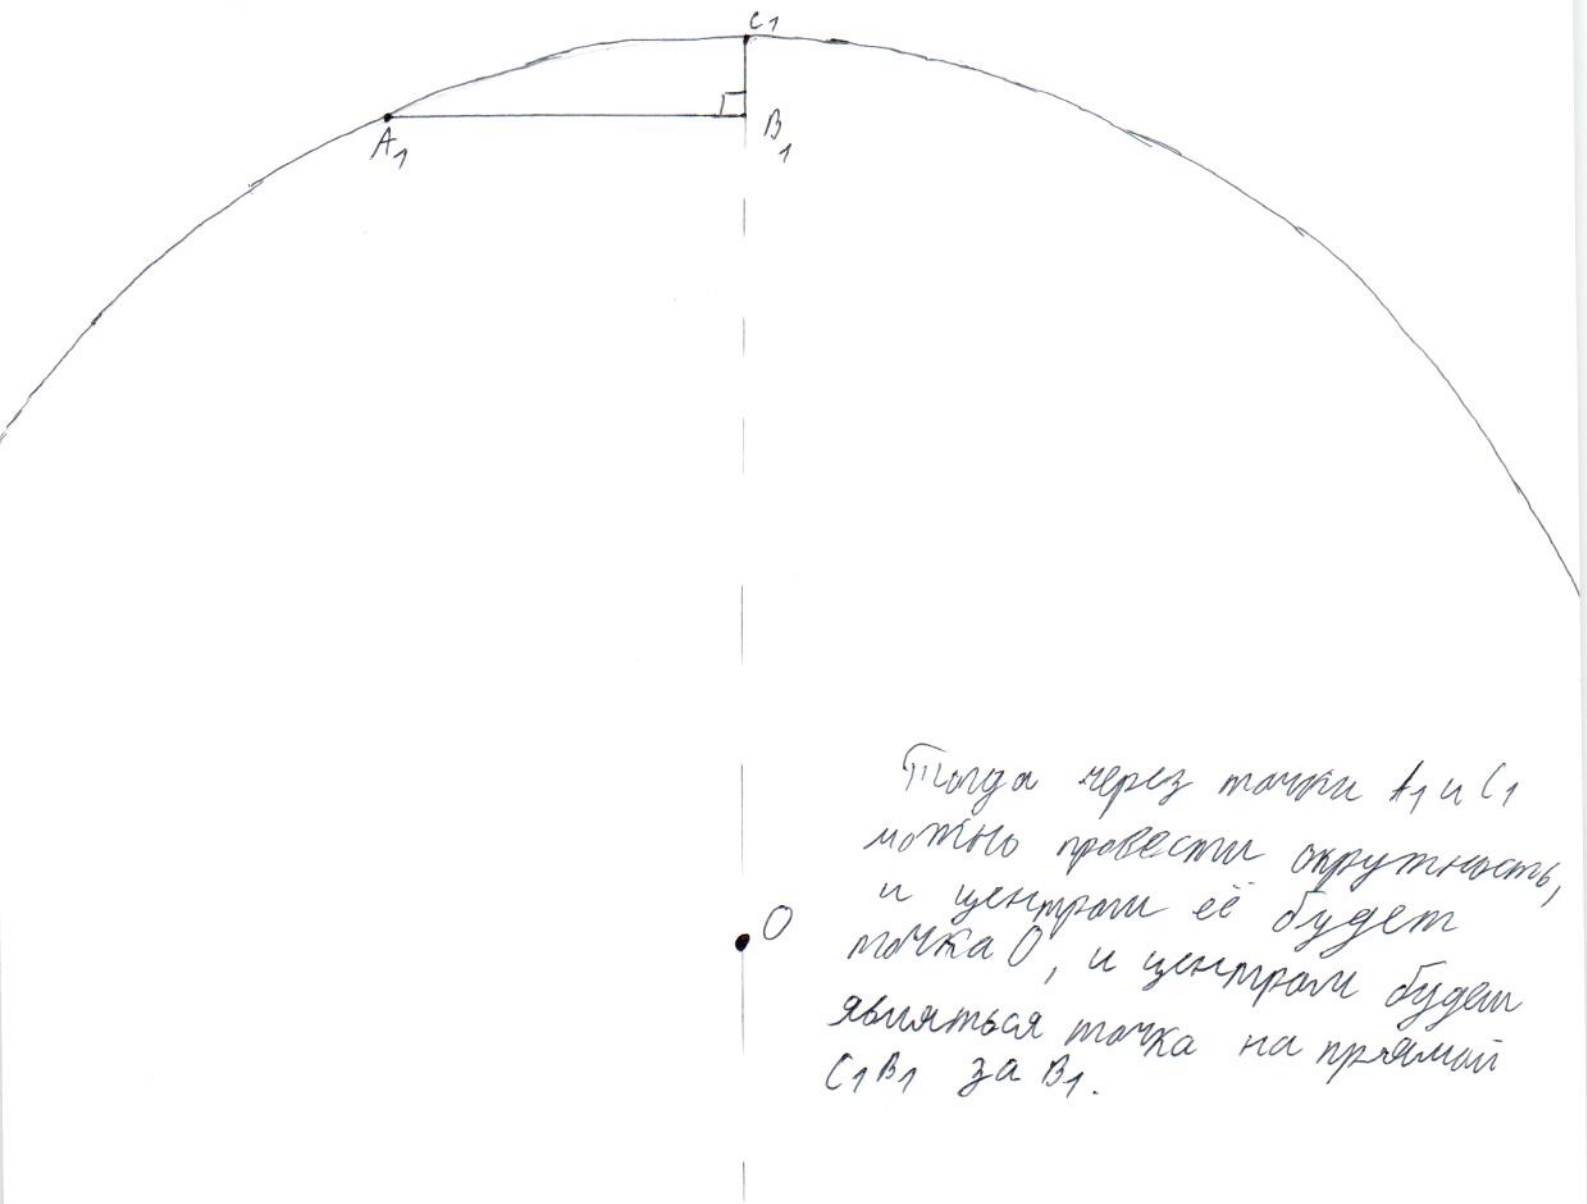 C1
A1
B1
O
Тогда через точки A1 и C1
можно провести окружность,
и центром её будет
точка O, и центром будет
являться точка на прямой
C1B1 за B1.